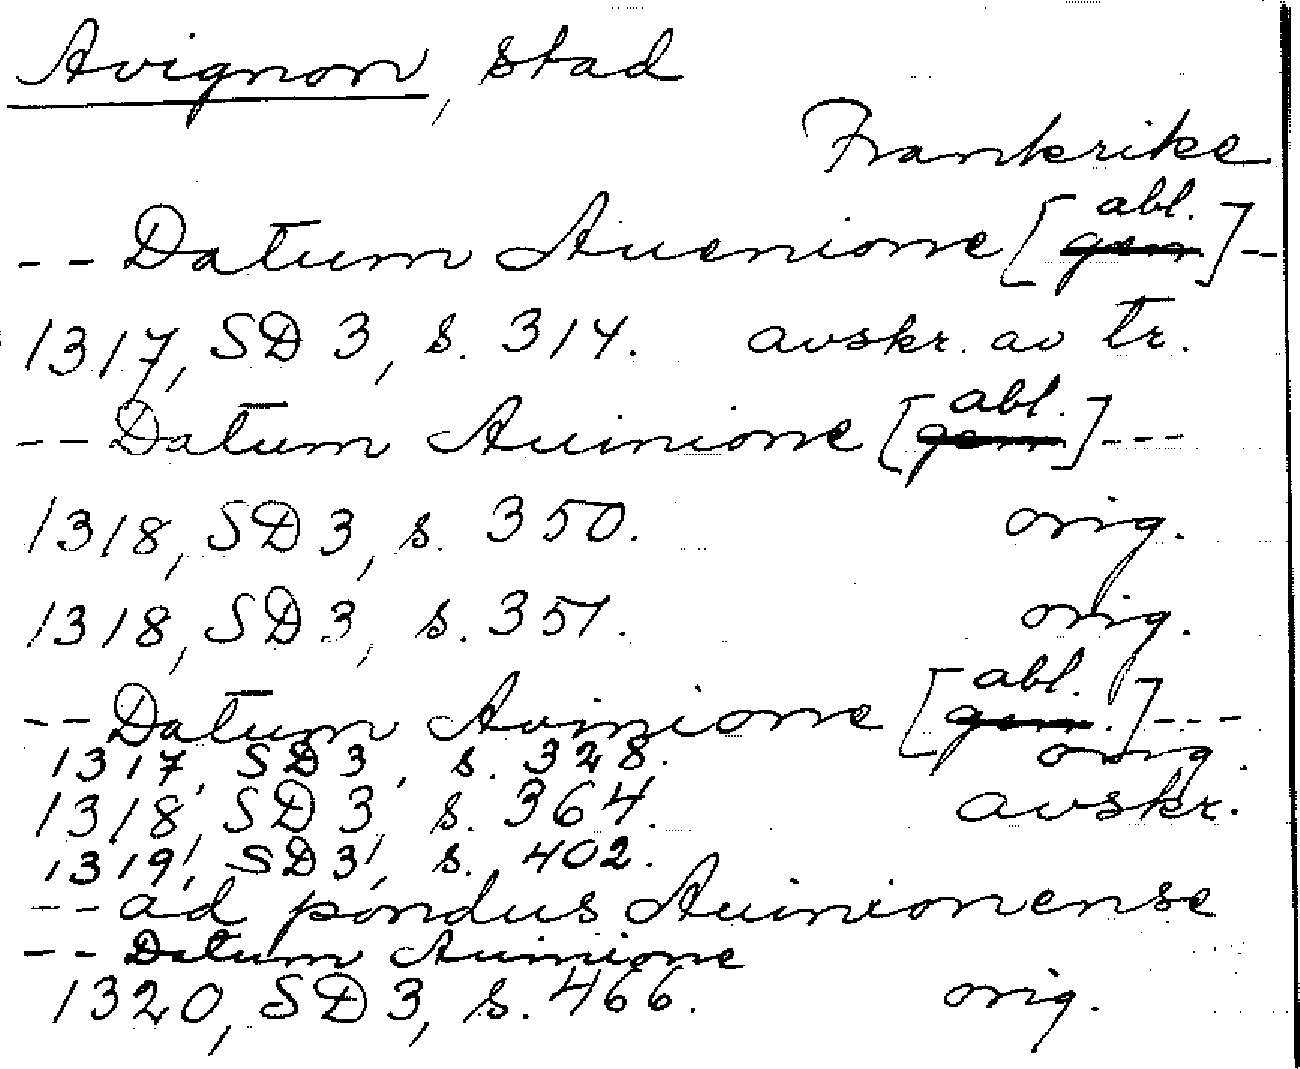 Avignon, stad
Frankrike
-- Datum Auenione [gen abl.] --
1317, SD 3, s. 314. avskr. av tr.
-- Datum Auinione [gen abl.] ---
1318, SD 3, s. 350. orig.
1318, SD 3, s. 351. orig.
-- Datum Avinione [gen. abl.] ---
1317, SD 3, s. 328. orig.
1318, SD 3, s. 364. avskr.
1319, SD 3, s. 402.
-- ad pondus Auinionense
-- Datum Auinione
1320, SD 3, s. 466. orig.